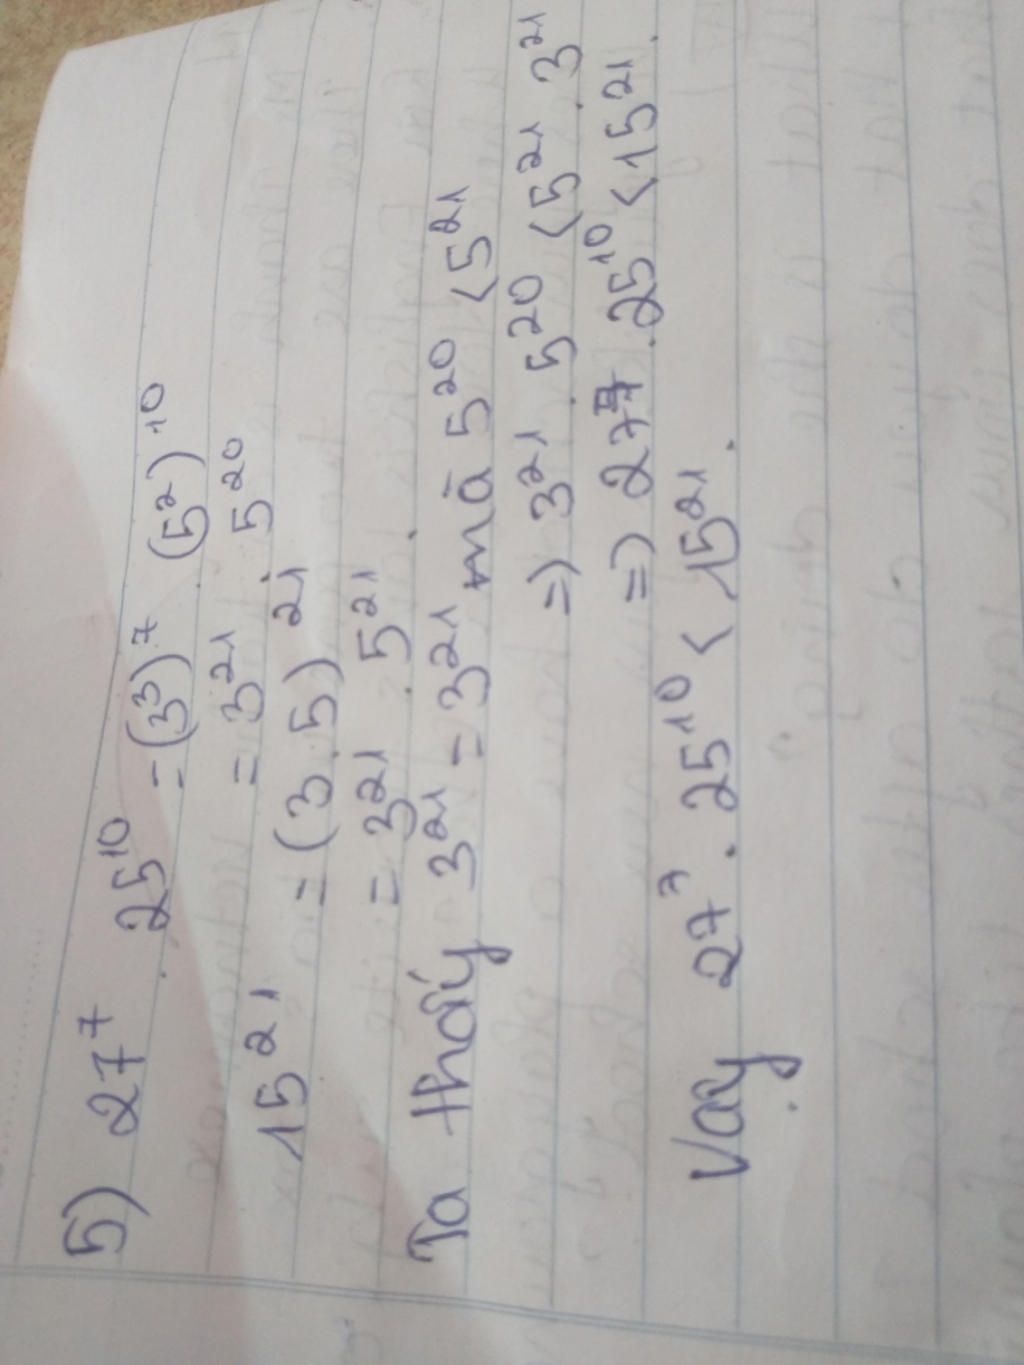 5) 27⁷ . 25¹⁰ = (3³)⁷ . (5²)¹⁰
= 3²¹ . 5²⁰
15²¹ = (3.5)²¹
= 3²¹ . 5²¹
Ta thấy 3²¹ = 3²¹ mà 5²⁰ < 5²¹
=> 3²¹ . 5²⁰ < 5²¹ . 3²¹
=> 27⁷ . 25¹⁰ < 15²¹.
Vậy 27⁷ . 25¹⁰ < 15²¹.